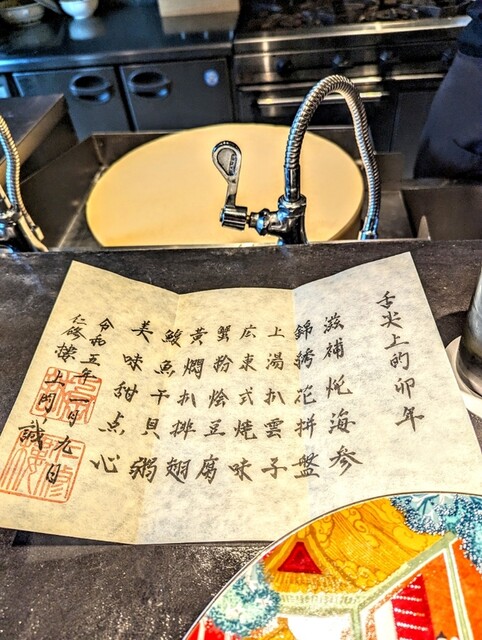 舌尖上的卯年
滋補炖海参
錦绣花拼盤
上湯扒雲子
広東式焼味
蟹粉烩豆腐
黄燜扒排翅
鰒魚干貝粥
美味甜点心
令和五年一月九日
仁修樓 上岡 誠